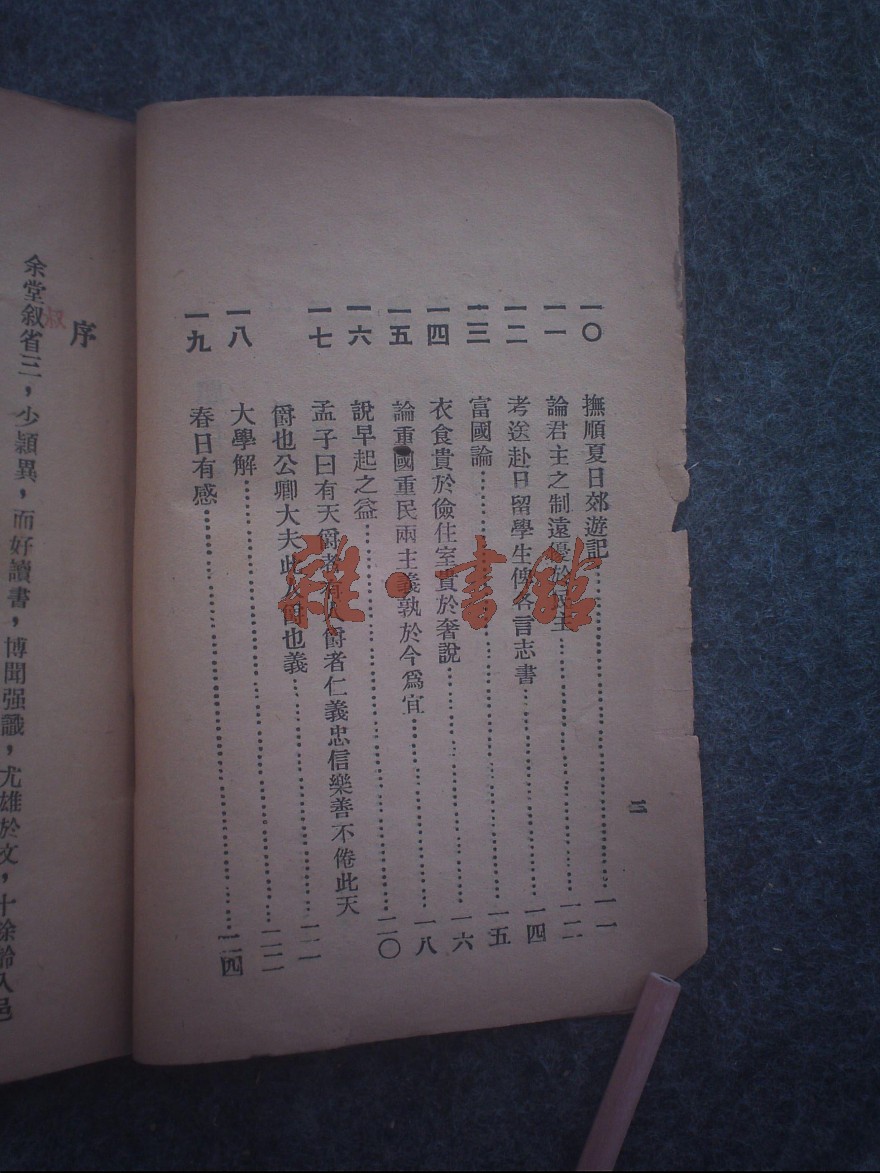 一〇 撫順夏日郊遊記……一一
一一 論君主之制遠優於民主……一二
一二 考送赴日留學生俾各言志書……一四
一三 富國論……一五
一四 衣食貴於儉住室貴於奢說……一六
一五 論重國重民兩主義孰於今爲宜……一八
一六 說早起之益……二〇
一七 孟子曰有天爵者有人爵者仁義忠信樂善不倦此天
爵也公卿大夫此人爵也義……二一
一八 大學解……二二
一九 春日有感……二四
二
序
叔
余堂叙省三,少穎異,而好讀書,博聞强識,尤雄於文,十餘齡入邑
雜·書館